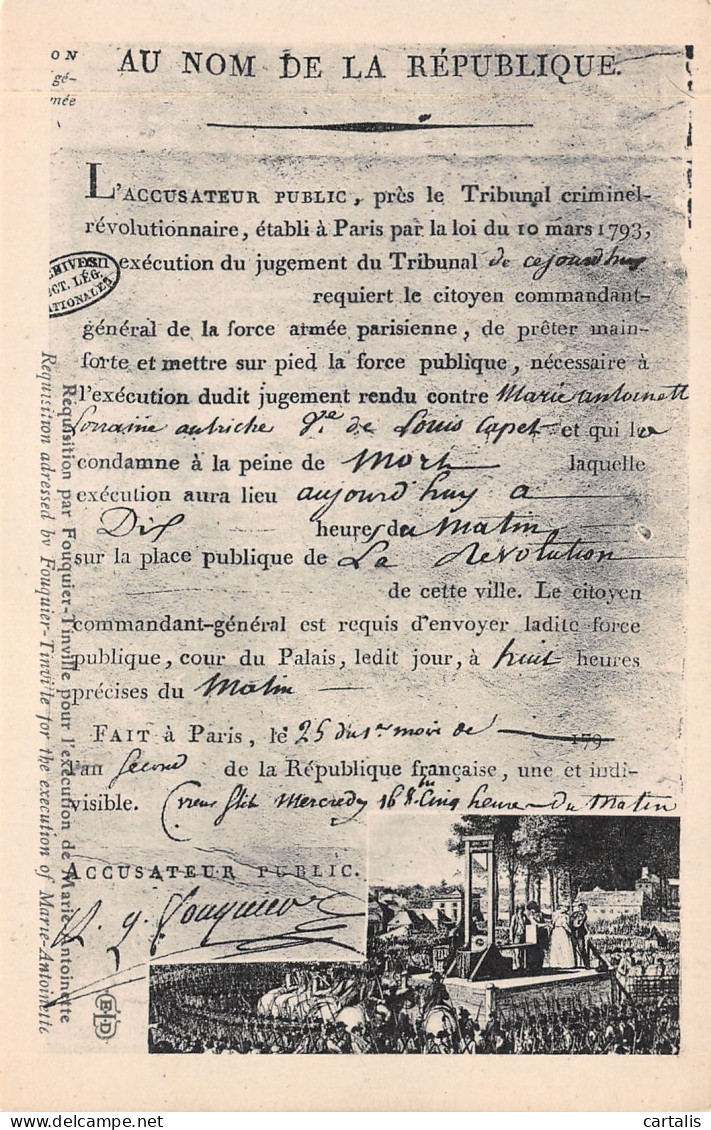 ON
gé-
mée
AU NOM DE LA RÉPUBLIQUE.
L'ACCUSATEUR PUBLIC, près le Tribunal criminel-
révolutionnaire, établi à Paris par la loi du 10 mars 1793,
exécution du jugement du Tribunal de cejourdhuy
requiert le citoyen commandant-
général de la force armée parisienne, de prêter main-
forte et mettre sur pied la force publique, nécessaire à
l'exécution dudit jugement rendu contre Marie antoinett
Lorraine autriche Ve de Louis Capet et qui la
condamne à la peine de Mort laquelle
exécution aura lieu aujourd'huy a
Dix heures du Matin
sur la place publique de La Révolution
de cette ville. Le citoyen
commandant-général est requis d'envoyer ladite force
publique, cour du Palais, ledit jour, à huit heures
précises du Matin
FAIT à Paris, le 25 du 1er mois de 179
l'an Second de la République française, une et indi-
visible. (vieux stile Mercredy 16 8bre Cinq heures Du Matin
ACCUSATEUR PUBLIC.
A. q. Fouquier
ARCHIVES
SECT. LÉG.
NATIONALES
Requisition par Fouquier-Tinville pour l'exécution de Marie Antoinette
Requisition adressed by Fouquier-Tinville for the execution of Marie-Antoinette
E.L.D
www.delcampe.net
cartalis